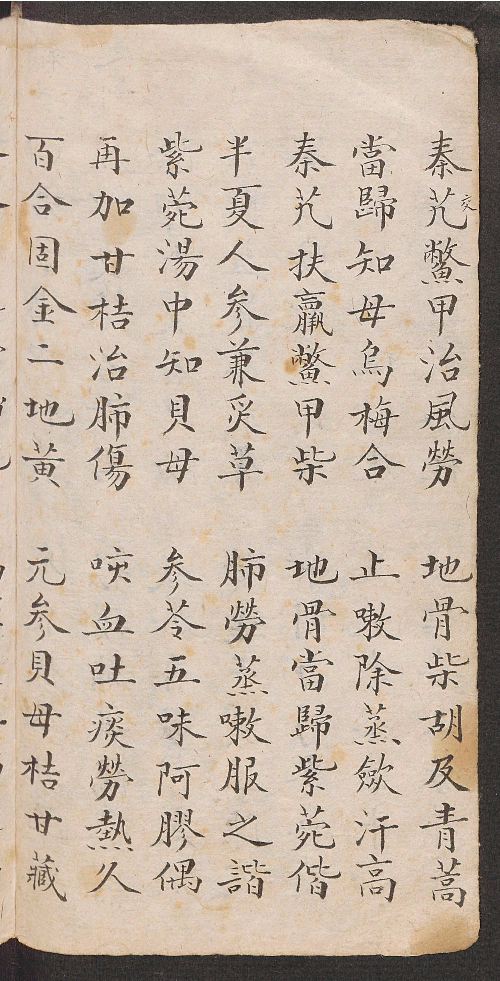 秦艽交鱉甲治風勞 地骨柴胡及青蒿
當歸知母烏梅合 止嗽除蒸歛汗高
秦艽扶羸鱉甲柴 地骨當歸紫菀偕
半夏人參兼炙草 肺勞蒸嗽服之諧
紫菀湯中知貝母 參苓五味阿膠偶
再加甘桔治肺傷 咳血吐痰勞熱久
百合固金二地黃 元參貝母桔甘藏